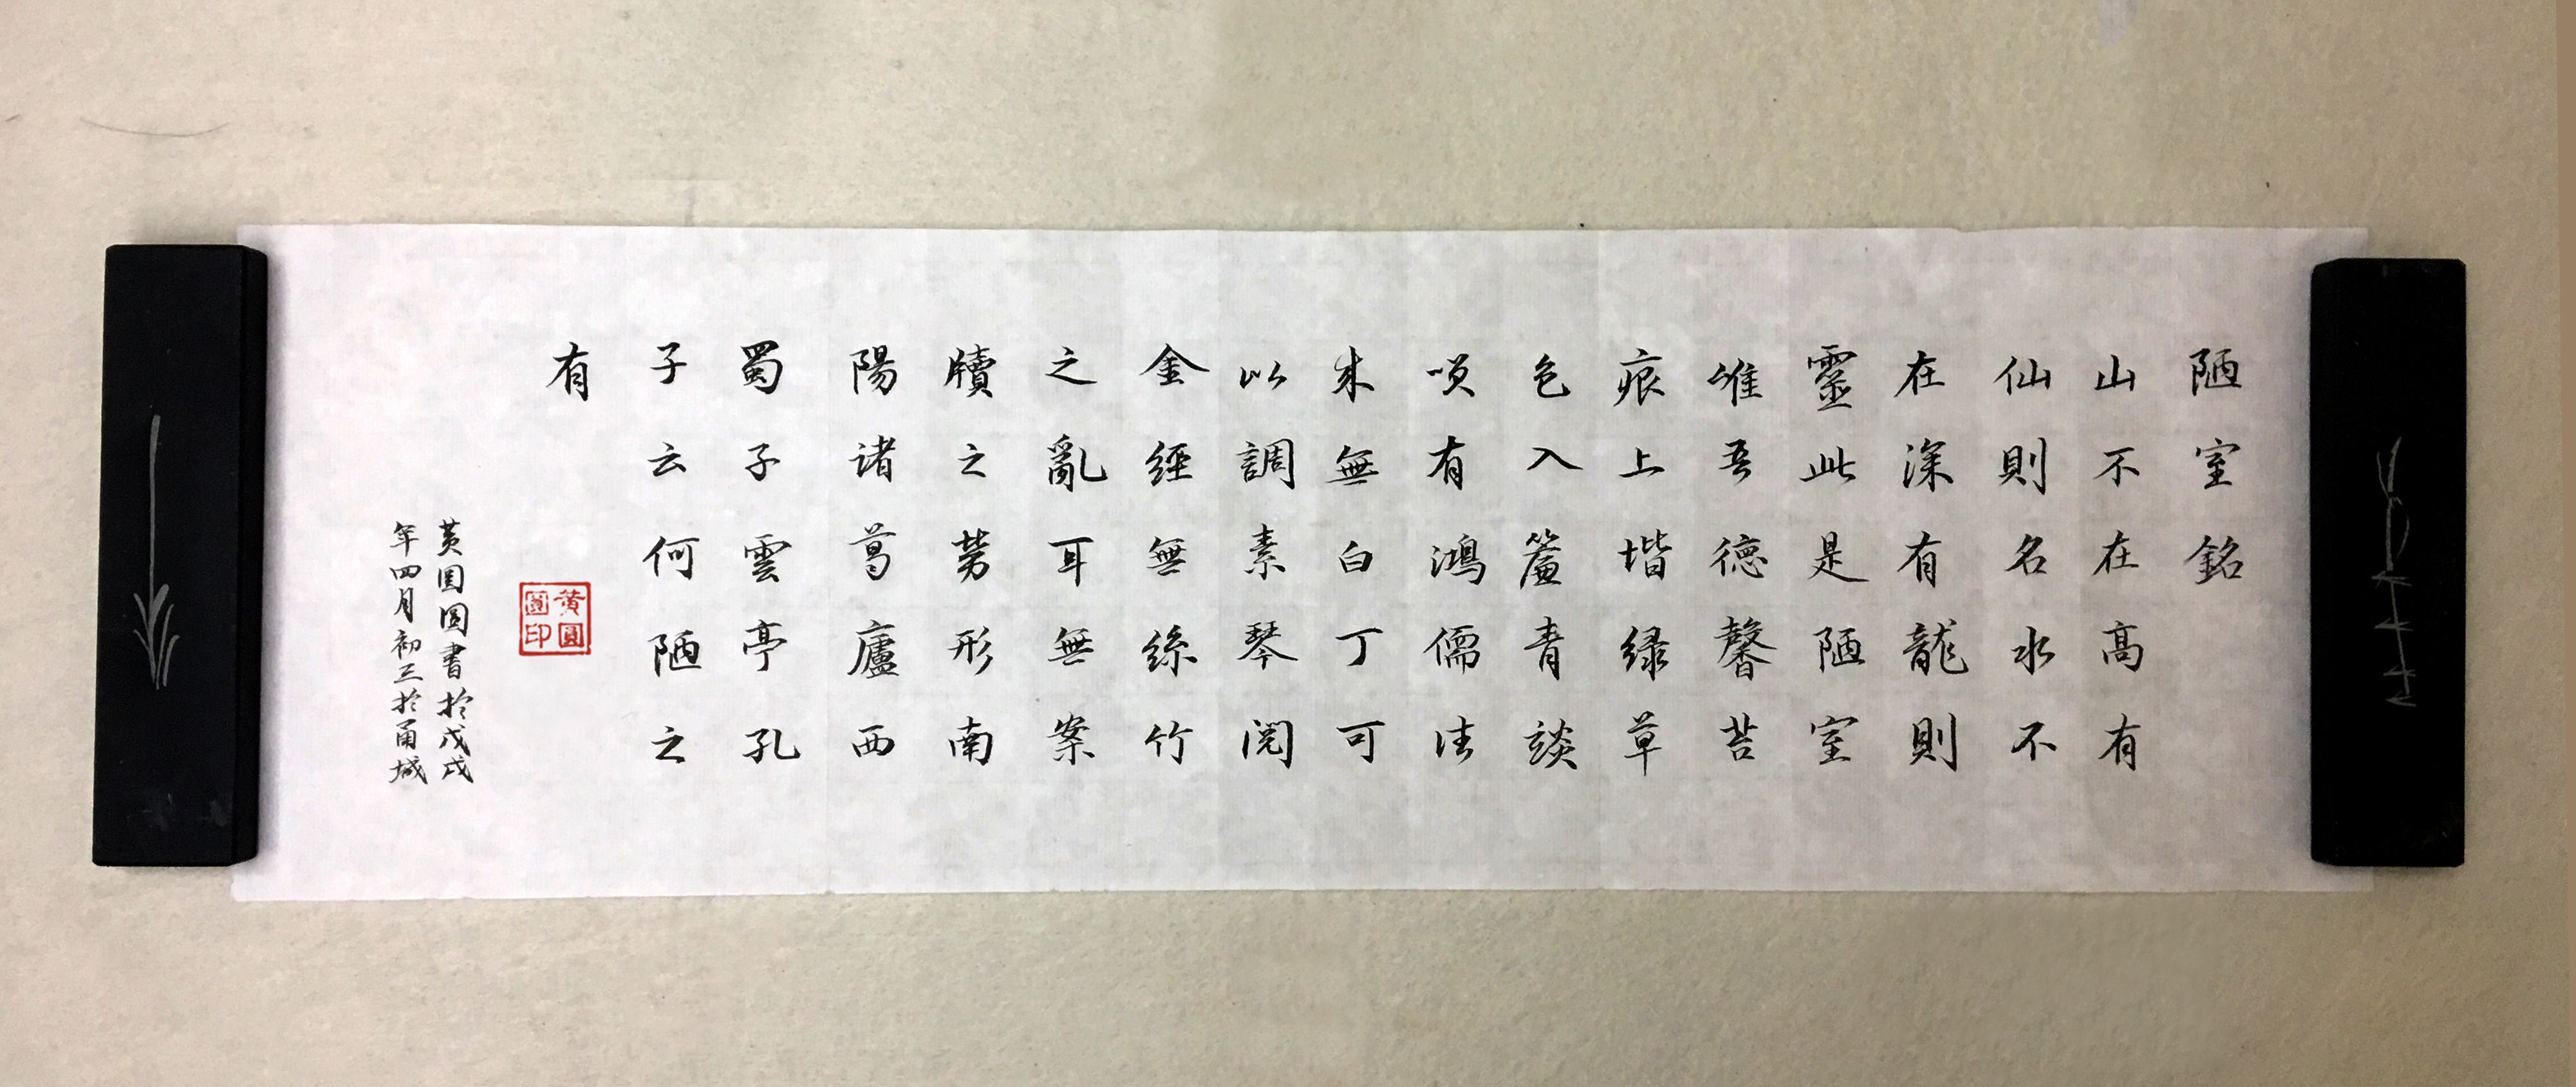 陋室銘
山不在高有
仙則名水不
在深有龍則
靈此是陋室
唯吾德馨苔
痕上堦緑草
色入簾青談
唄有鴻儒往
来無白丁可
以調素琴閱
金經無絲竹
之亂耳無案
牘之勞形南
陽諸葛廬西
蜀子雲亭孔
子云何陋之
有
黄圆圆書於戊戌
年四月初三於甬城
黄圓
圓印